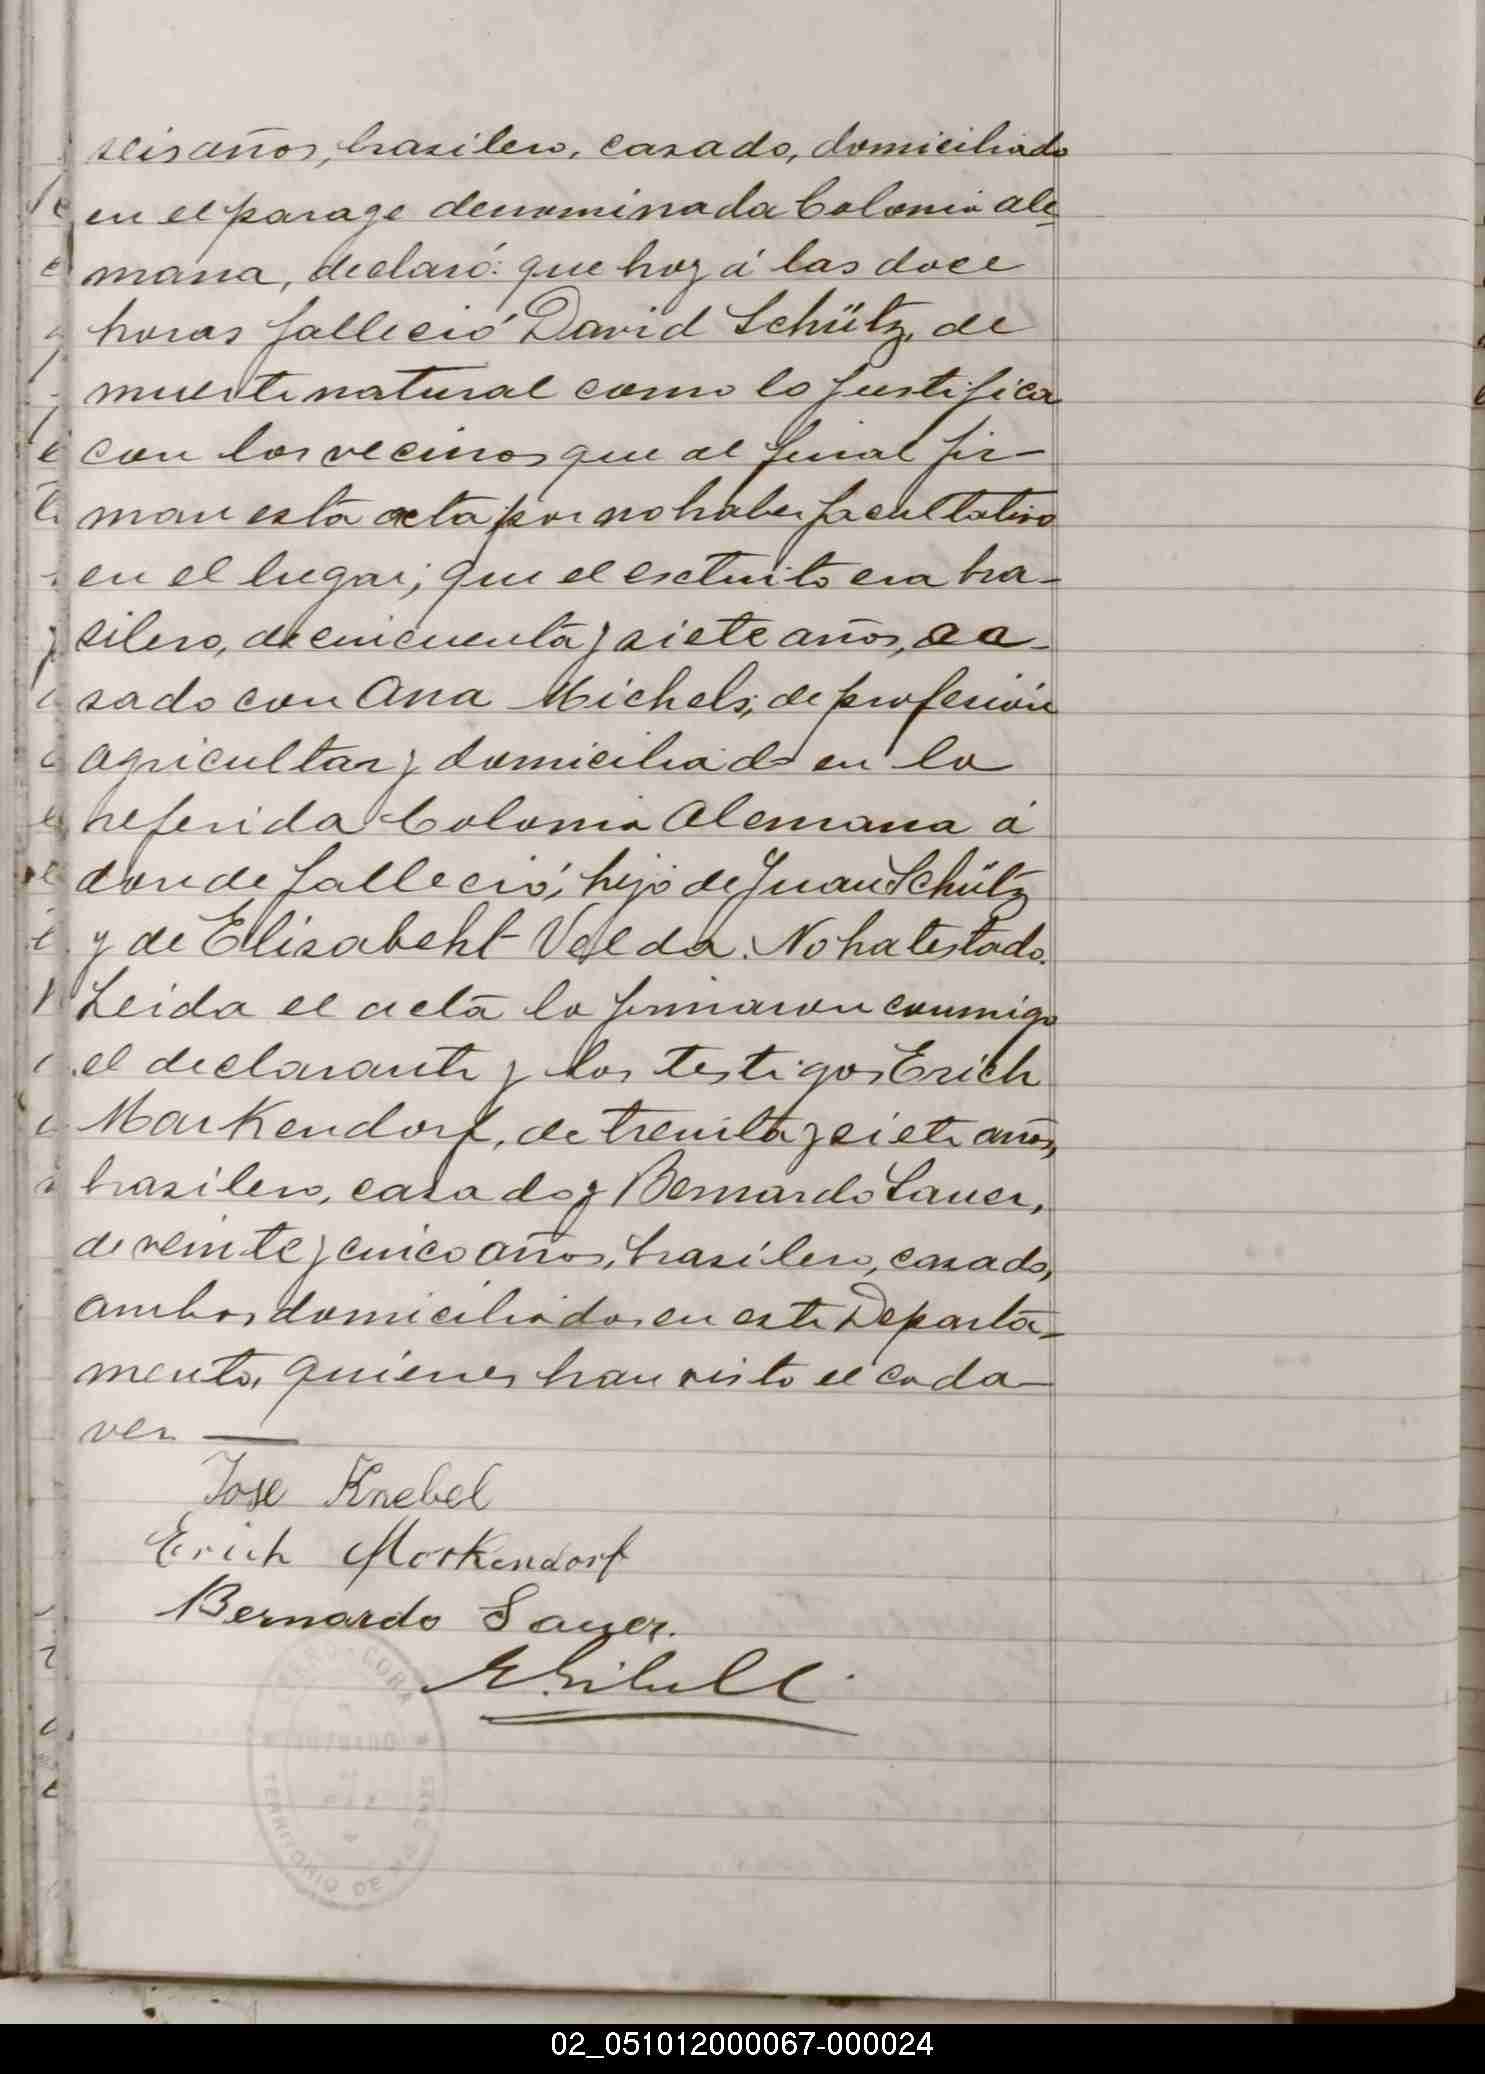 seis años, brasilero, casado, domiciliado
en el parage denominada Colonia Ale-
mana, declaró: que hoy á las doce
horas falleció David Schütz, de
muerte natural como lo justifica
con los vecinos que al final fir-
man esta acta por no haber facultativo
en el lugar; que el extinto era bra-
silero, de cincuenta y siete años, ca-
sado con Ana Michels, de profesión
agricultor y domiciliado en la
referida Colonia Alemana á
donde falleció, hijo de Juan Schütz
y de Elisabeht Velda. No ha testado.
Leida el acta la firmaron conmigo
el declarante y los testigos Erich
Markendorf, de treinta y siete años,
brasilero, casado y Bernardo Sauer,
de veinte y cinco años, brasilero, casado,
ambos domiciliados en este Departa-
mento, quienes han visto el cada-
ver.
Jose Knebel
Erich Markendorf
Bernardo Sauer.
CERRO-CORA
TERRITORIO DE MISIONES
02_051012000067-000024